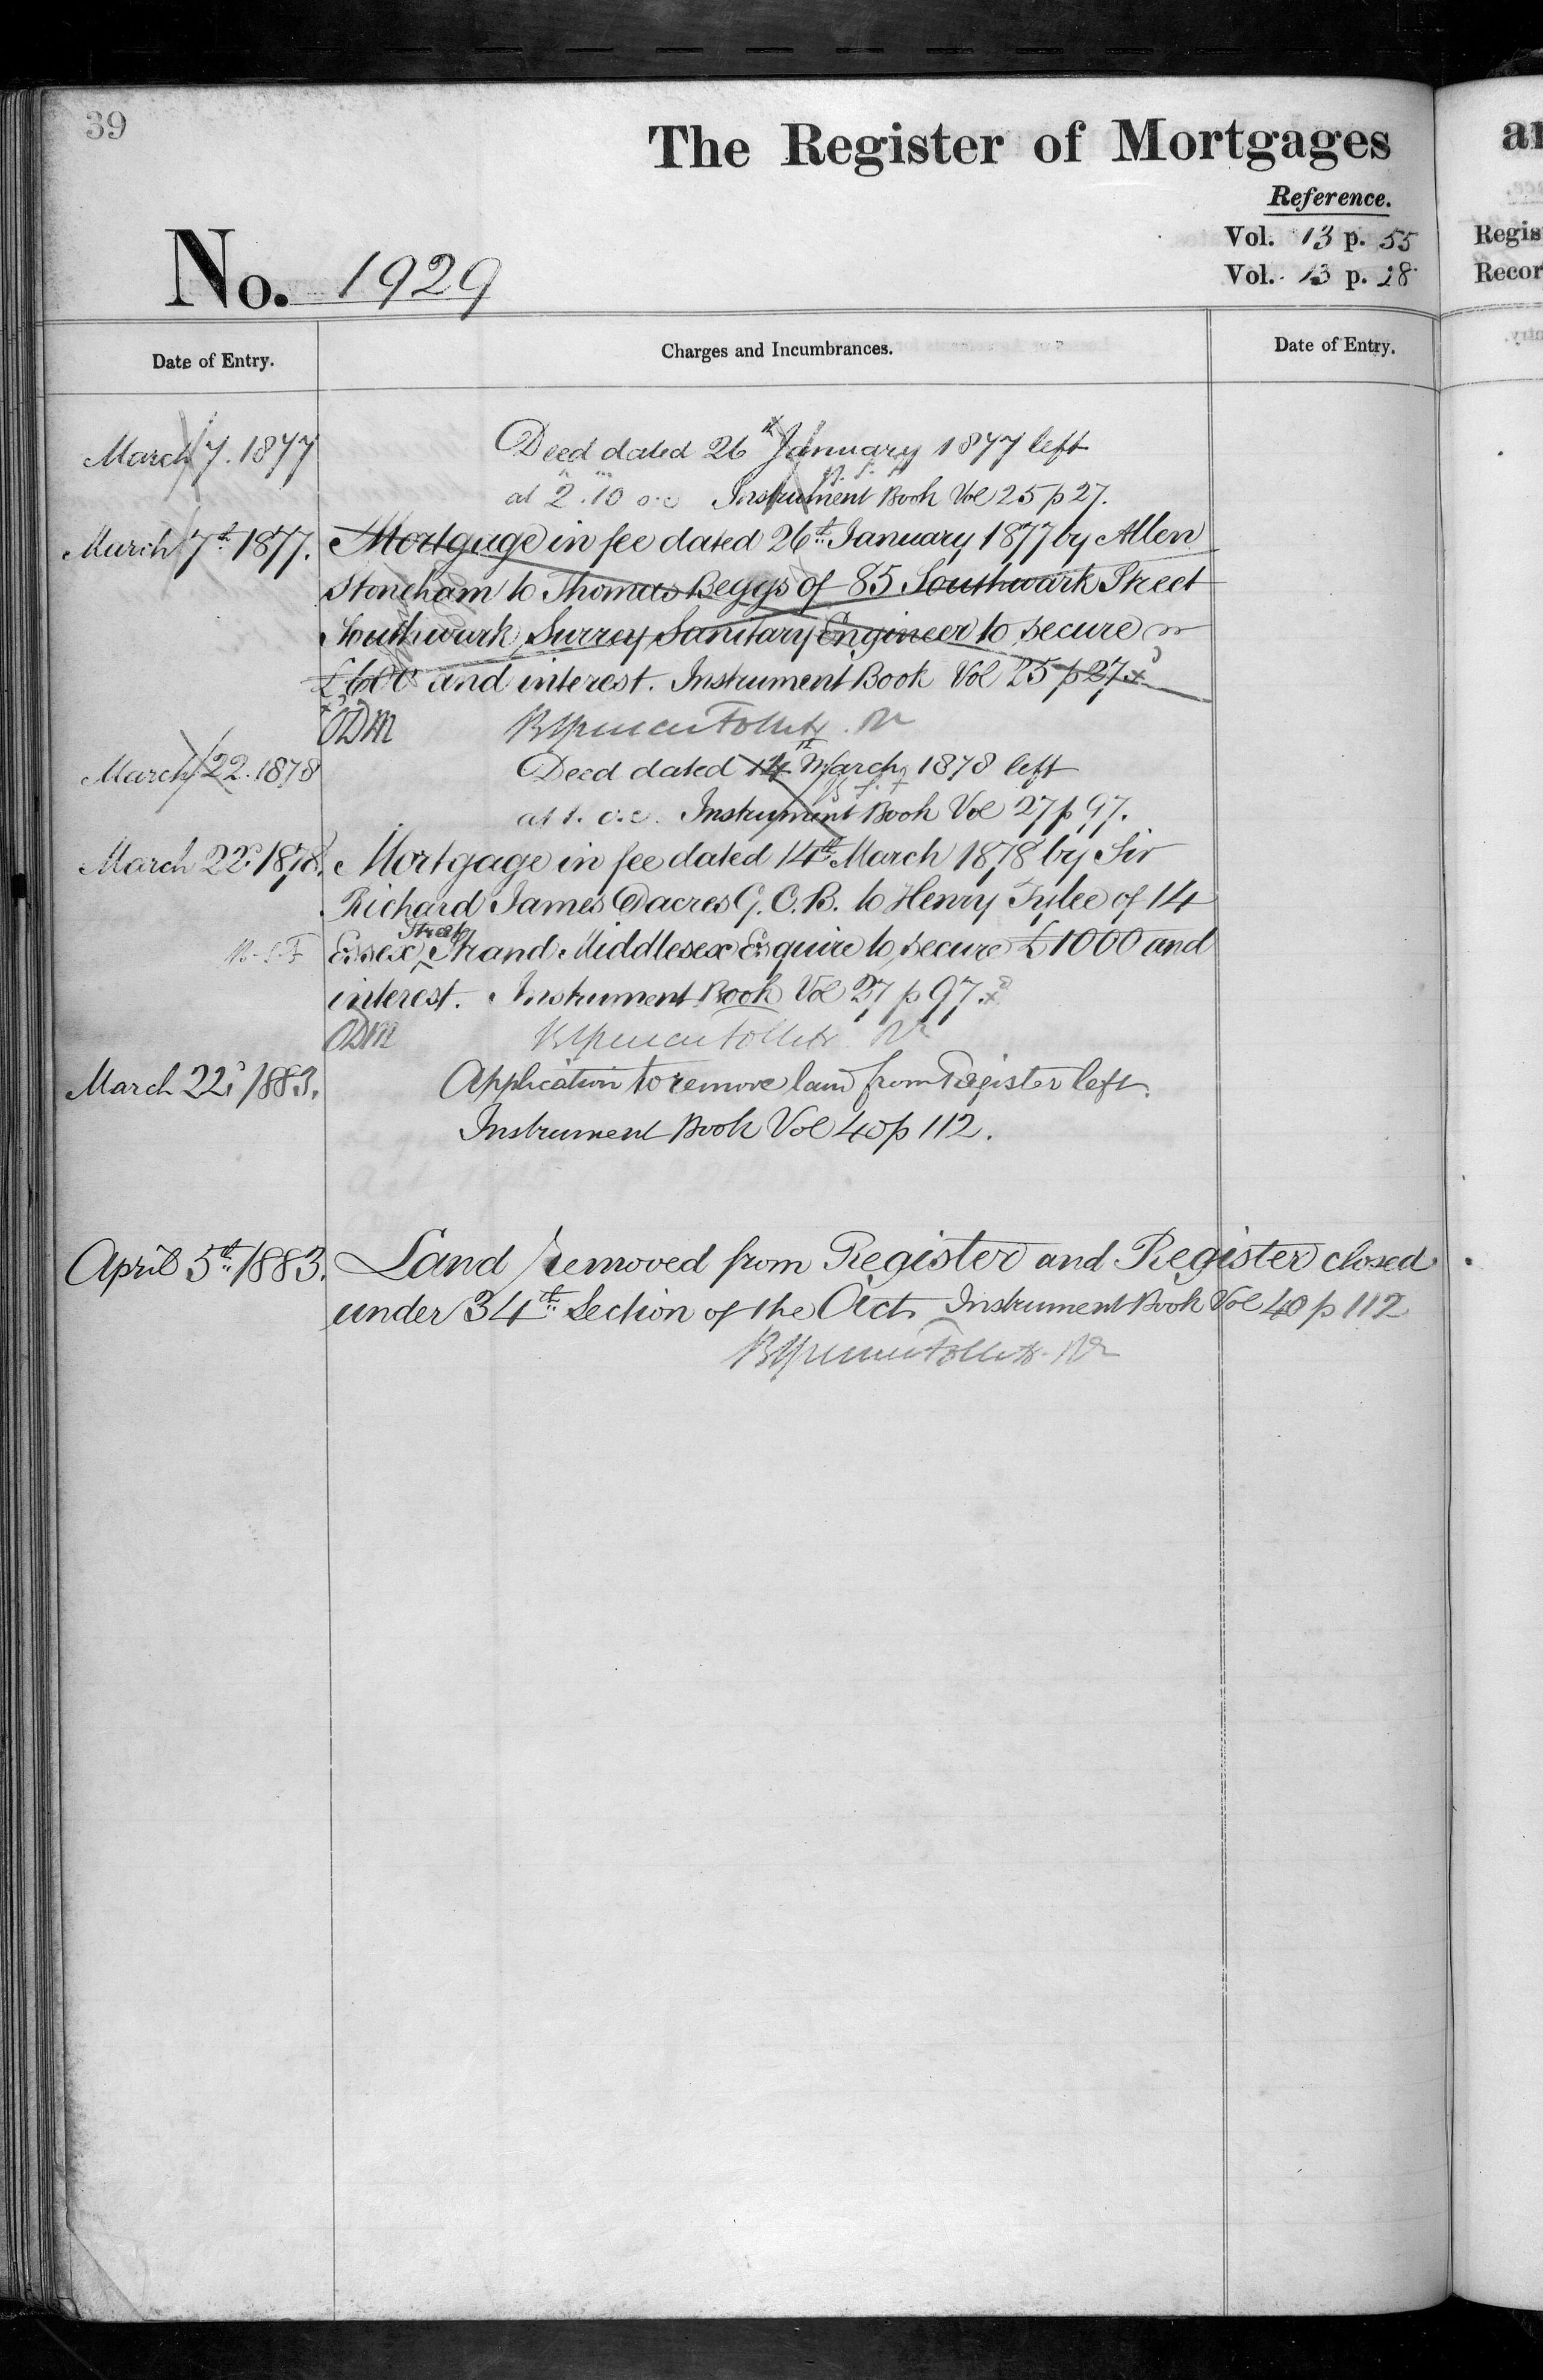 39
The Register of Mortgages
Reference.
Vol. 13 p. 55
Vol. 13 p. 28
No. 1929
Date of Entry.
Charges and Incumbrances.
Date of Entry.
March 7. 1877
Deed dated 26th January 1877 left
at 2.10 o.c Instrument Book Vol 25 p 27.
March 7th 1877. Mortgage in fee dated 26th January 1877 by Allen
Stoneham to Thomas Beggs of 85 Southwark Street
Southwark, Surrey, Sanitary Engineer to secure
£600 and interest. Instrument Book Vol 25 p 27
ODM
March 22. 1878
Deed dated 14th March 1878 left
at 1. o.c. Instrument Book Vol 27 p 97.
March 22d 1878. Mortgage in fee dated 14th March 1878 by Sir
Richard James Dacres G.C.B. to Henry Tylee of 14
Essex Street Strand Middlesex Esquire to secure £1000 and
interest. Instrument Book Vol 27 p 97
ODM
March 22d 1883.
Application to remove land from Register left.
Instrument Book Vol 40 p 112.
April 5th 1883. Land removed from Register and Register closed
under 34th Section of the Act Instrument Book Vol 40 p 112
Regis
Recor